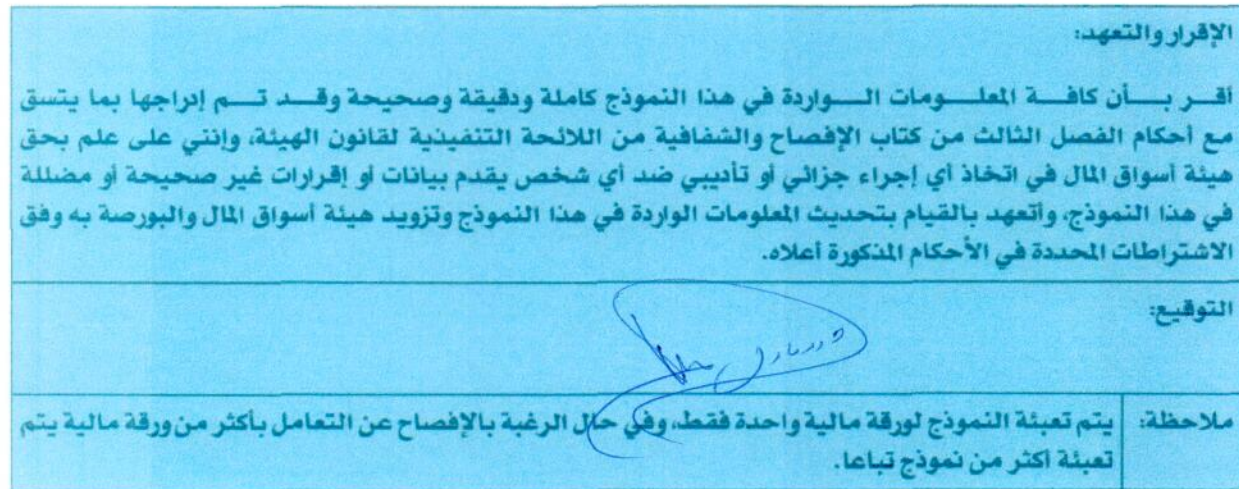 الإقرار والتعهد:
أقر بأن كافة المعلومات الواردة في هذا النموذج كاملة ودقيقة وصحيحة وقد تم إدراجها بما يتسق
مع أحكام الفصل الثالث من كتاب الإفصاح والشفافية من اللائحة التنفيذية لقانون الهيئة، وإنني على علم بحق
هيئة أسواق المال في اتخاذ أي إجراء جزائي أو تأديبي ضد أي شخص يقدم بيانات أو إقرارات غير صحيحة أو مضللة
في هذا النموذج، وأتعهد بالقيام بتحديث المعلومات الواردة في هذا النموذج وتزويد هيئة أسواق المال والبورصة به وفق
الاشتراطات المحددة في الأحكام المذكورة أعلاه.
التوقيع:
ملاحظة: يتم تعبئة النموذج لورقة مالية واحدة فقط، وفي حال الرغبة بالإفصاح عن التعامل بأكثر من ورقة مالية يتم
تعبئة اكثر من نموذج تباعا.